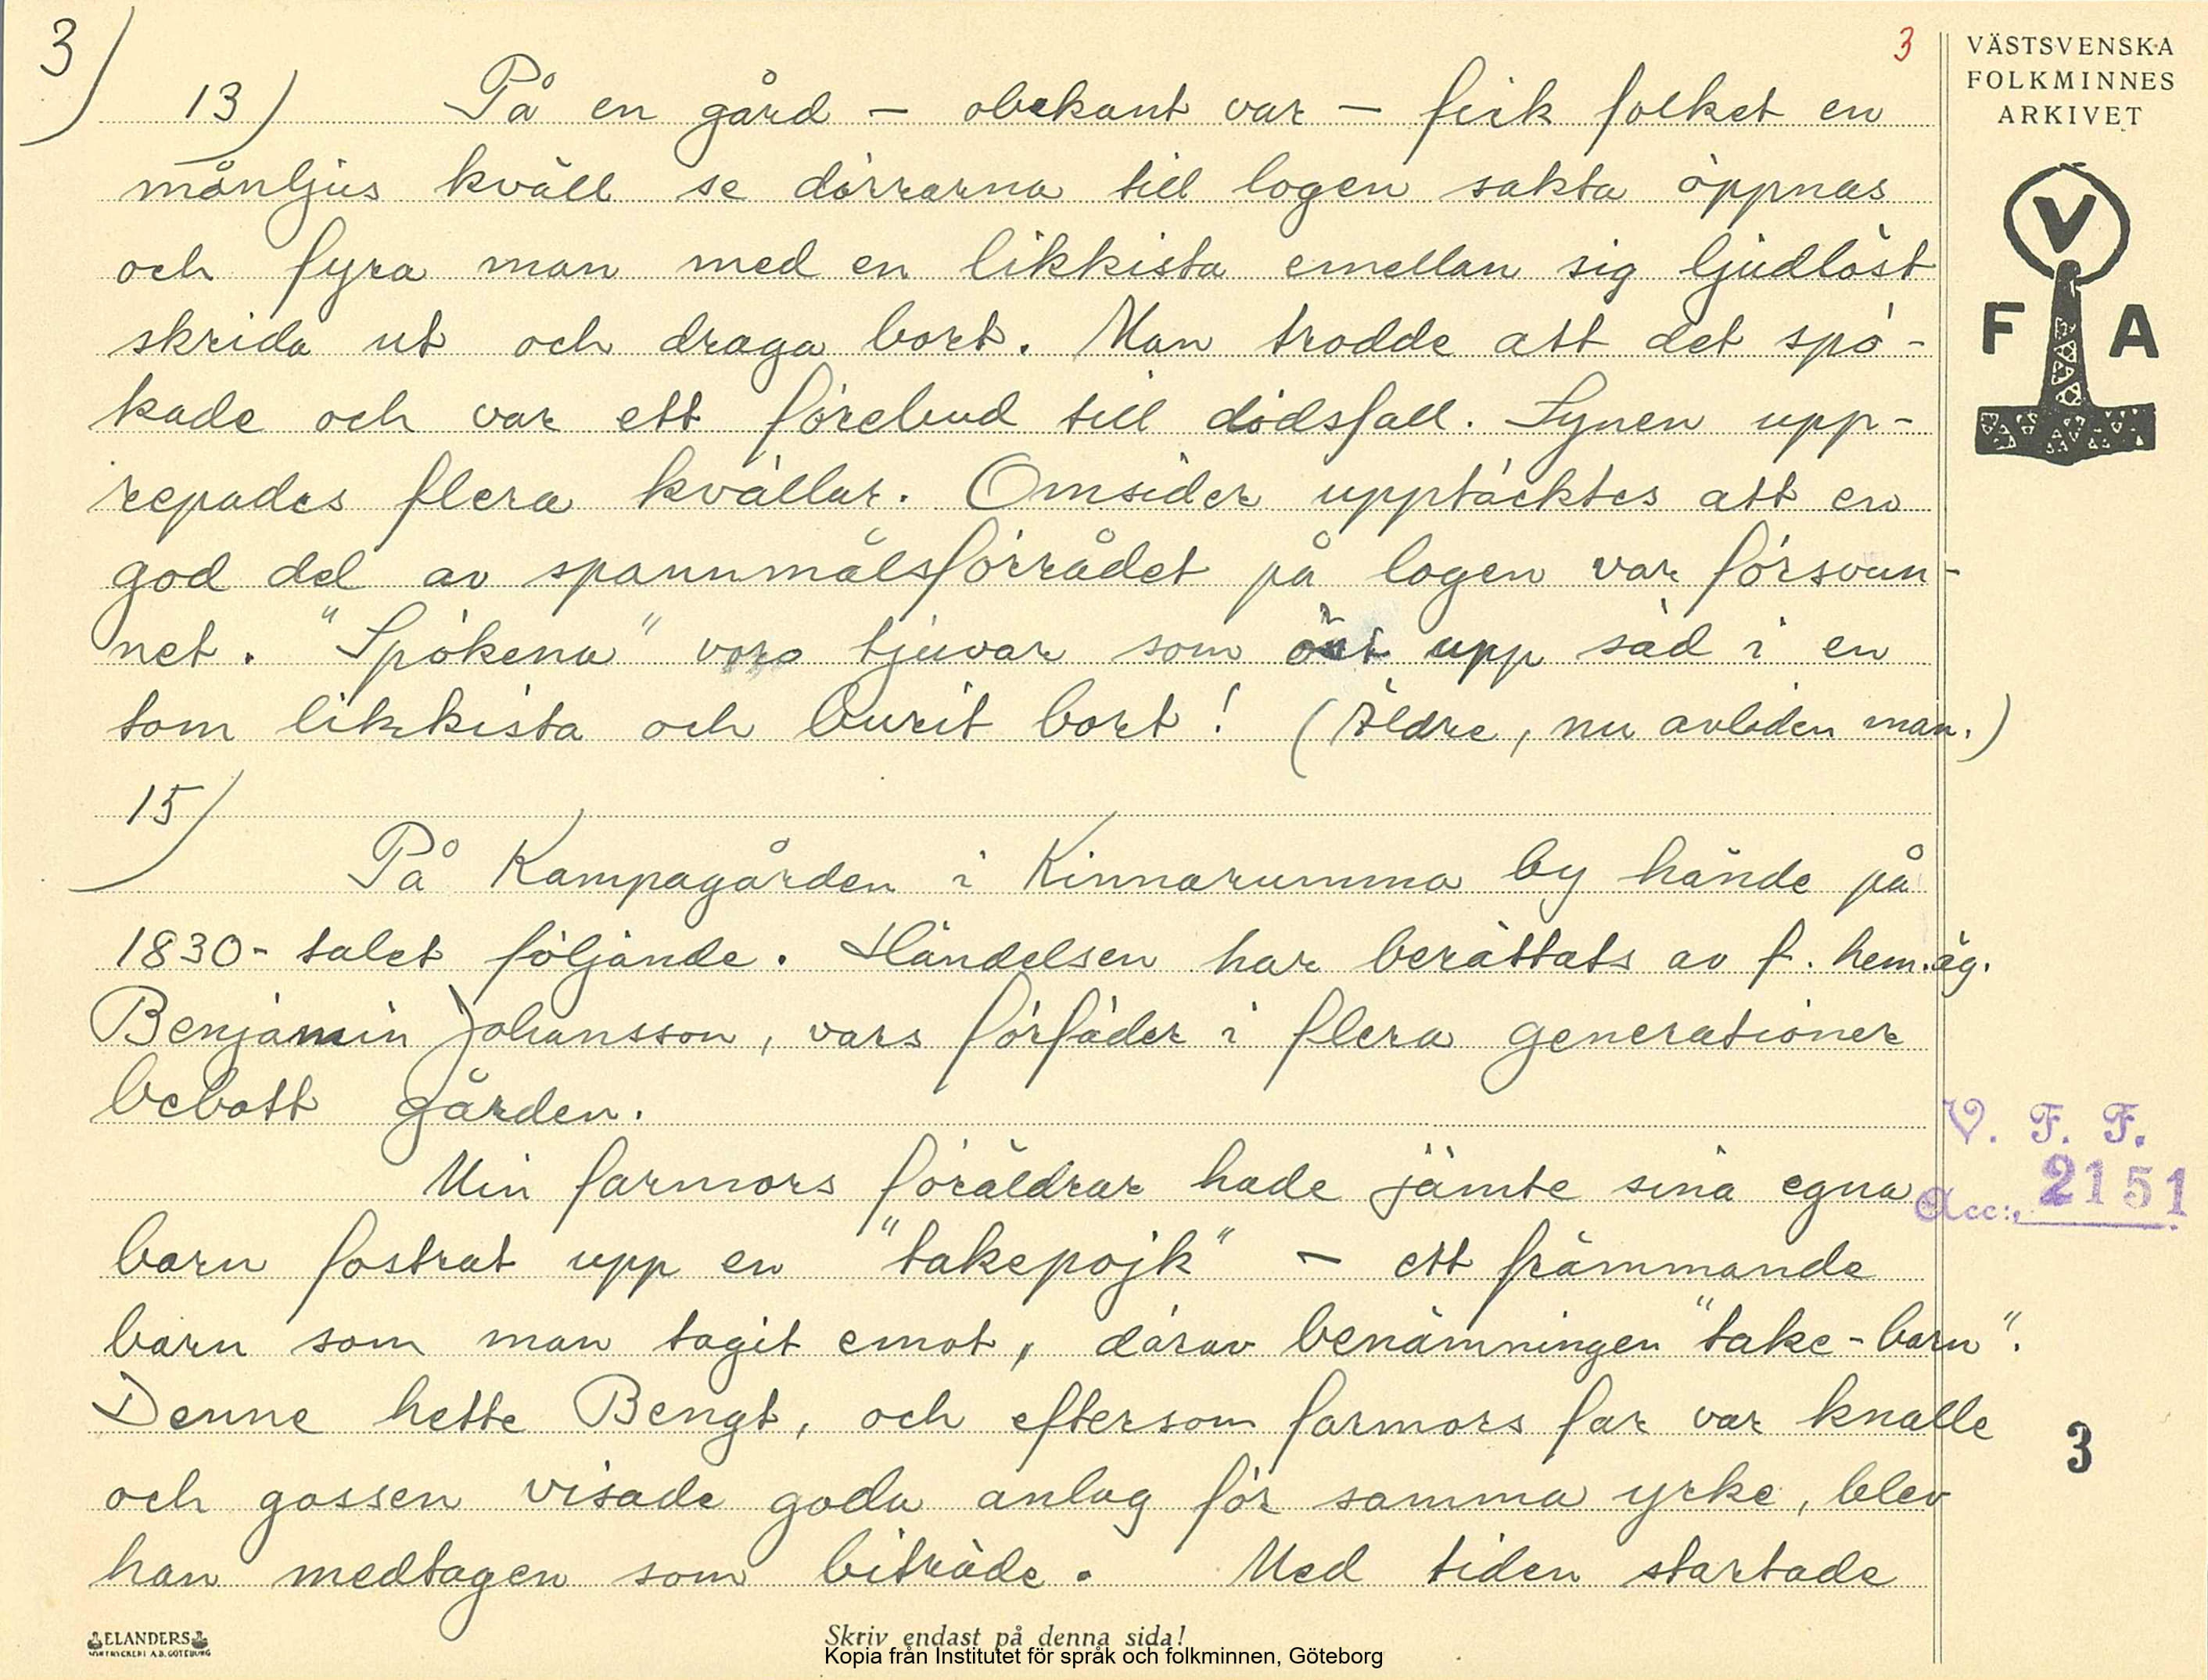 3)
3
VÄSTSVENSKA
FOLKMINNES
ARKIVET
V
F A
13) På en gård – obekant var – fick folket en
månljus kväll se dörrarna till logen sakta öppnas
och fyra man med en likkista emellan sig ljudlöst
skrida ut och draga bort. Man trodde att det spö-
kade och var ett förebud till dödsfall. Synen upp-
repades flera kvällar. Omsider upptäcktes att en
god del av spannmålsförrådet på logen var försvun-
net. "Spökena" voro tjuvar som öst upp säd i en
tom likkista och burit bort! (Äldre, nu avliden man.)
15)
På Kampagården i Kinnarumma by hände på
1830-talet följande. Händelsen har berättats av f. hem.äg.
Benjamin Johansson, vars förfäder i flera generationer
bebott gården.
Min farmors föräldrar hade jämte sina egna
barn fostrat upp en "takepojk" – ett främmande
barn som man tagit emot, därav benämningen "take-barn".
Denne hette Bengt, och eftersom farmors far var knalle
och gossen visade goda anlag för samma yrke, blev
han medtagen som biträde. Med tiden startade
V. F. F.
Acc:. 2151
3
ELANDERS
Skriv endast på denna sida!
Kopia från Institutet för språk och folkminnen, Göteborg